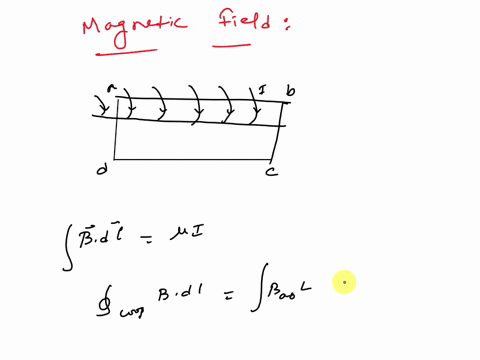 Magnetic Field :
a I b
d c
∫ B⃗ . d l⃗ = μ I
∮ loop B . dl = ∫ B_{ab} L